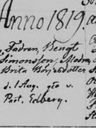 Anno 1819. a
Fadren, Bengt
Simonsson. Modren
Brita Börjesdotter
d. 1 Aug. af v.
Past. Friberg.